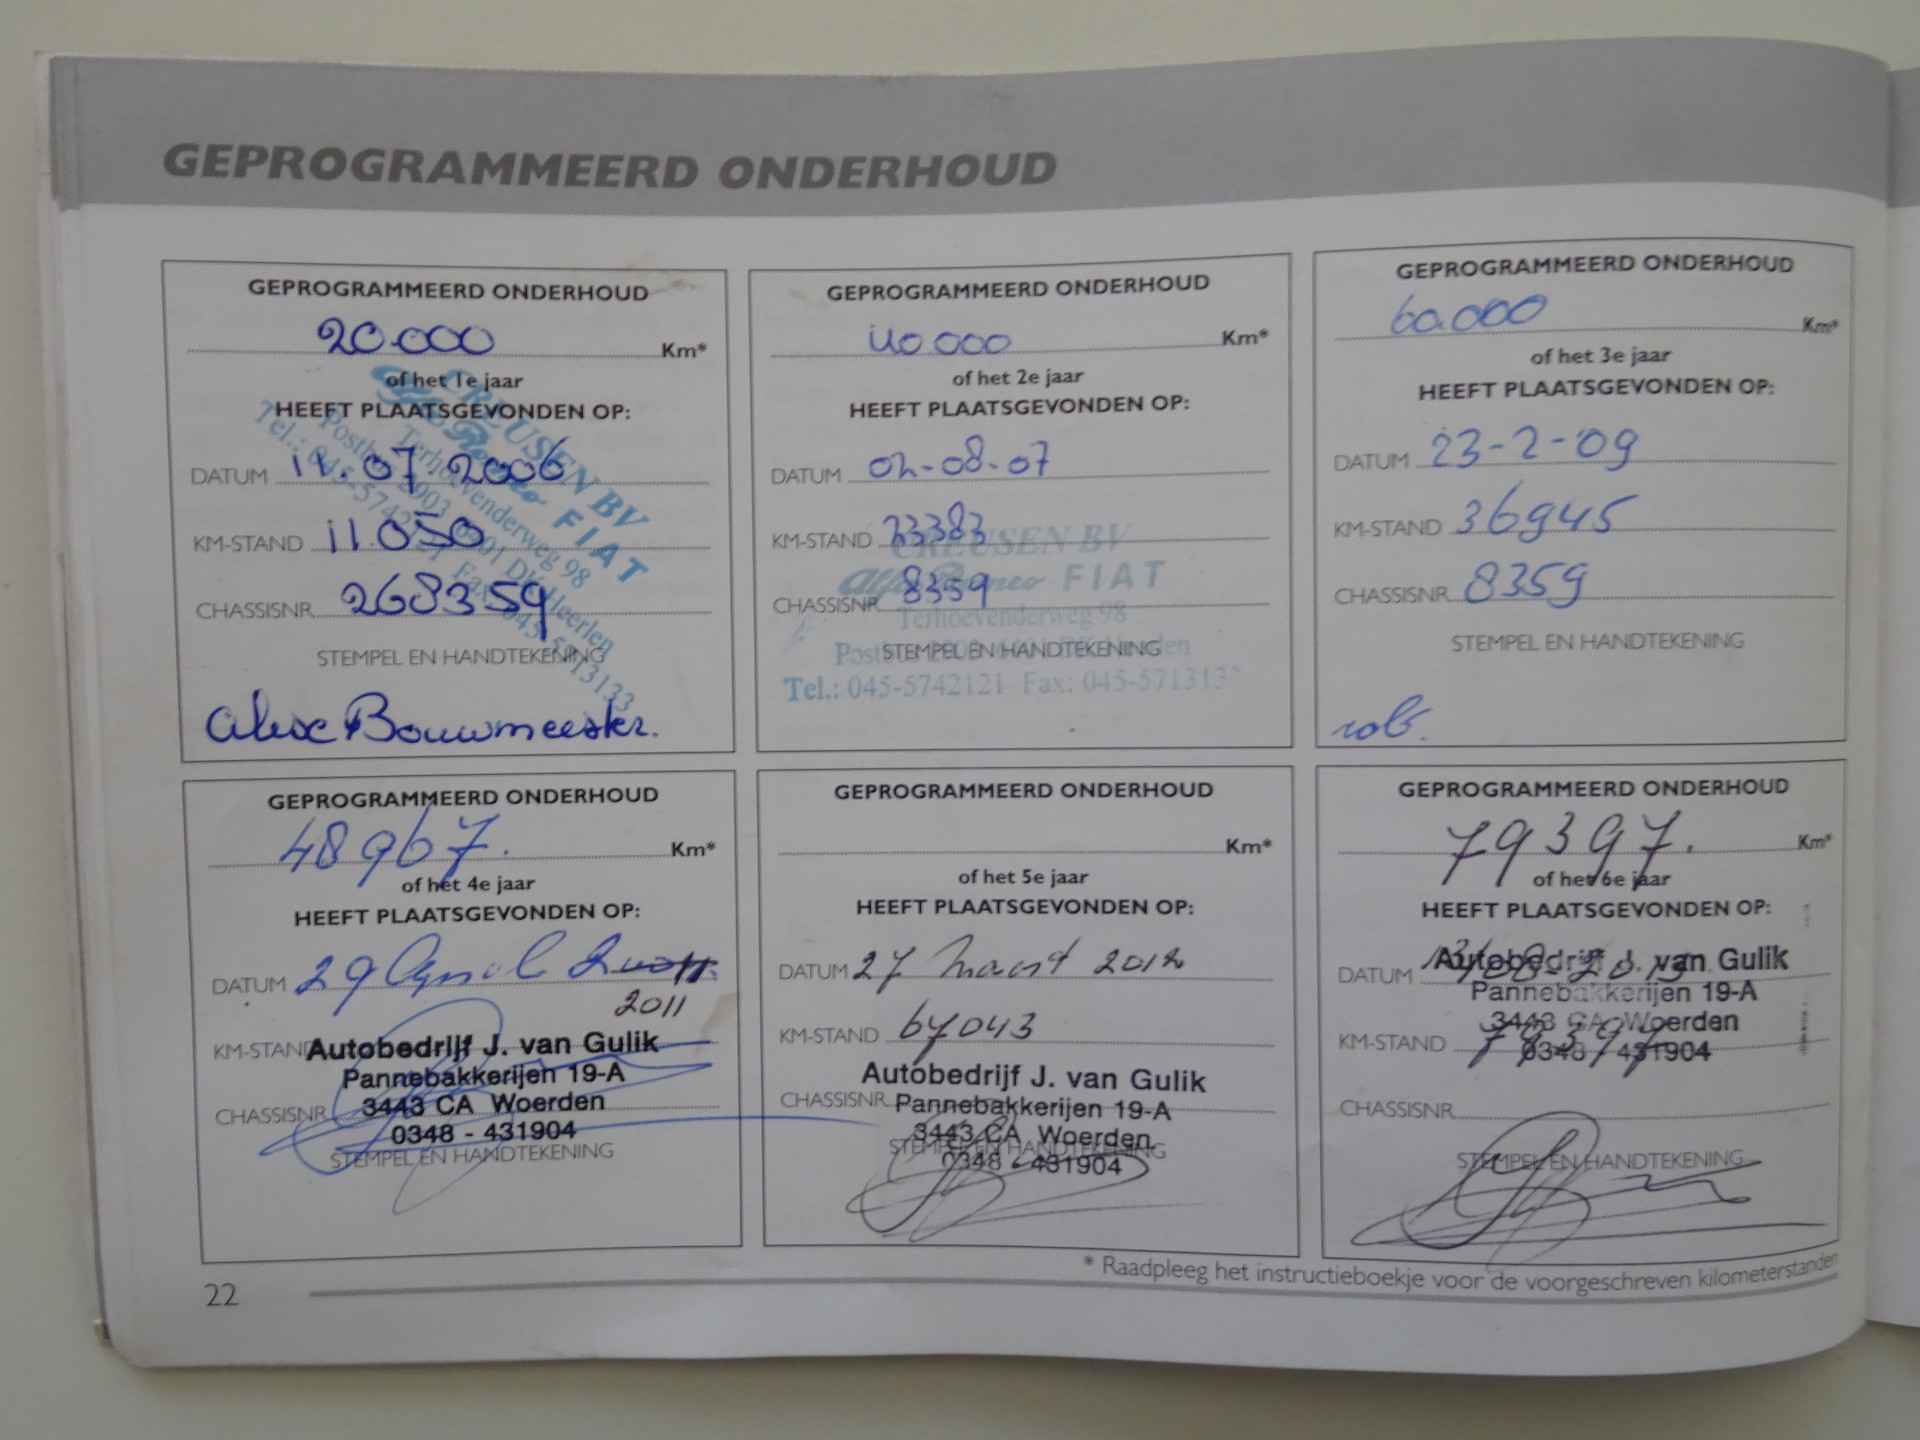 GEPROGRAMMEERD ONDERHOUD
GEPROGRAMMEERD ONDERHOUD
20.000 Km*
of het 1e jaar
HEEFT PLAATSGEVONDEN OP:
DATUM 11.07.2006
KM-STAND 11.050
CHASSISNR 268359
STEMPEL EN HANDTEKENING
CREUSEN BV
Alfa Romeo FIAT
Terhoevenderweg 98
Postbus 2003 DK Heerlen
Tel.: 045-5742121 Fax: 045-5713133
Alex Bouwmeester.
GEPROGRAMMEERD ONDERHOUD
40.000 Km*
of het 2e jaar
HEEFT PLAATSGEVONDEN OP:
DATUM 02-08-07
KM-STAND 23383
CHASSISNR 8359
STEMPEL EN HANDTEKENING
CREUSEN BV
Alfa Romeo FIAT
Terhoevenderweg 98
Tel.: 045-5742121 Fax: 045-571313
GEPROGRAMMEERD ONDERHOUD
60.000 Km*
of het 3e jaar
HEEFT PLAATSGEVONDEN OP:
DATUM 23-2-09
KM-STAND 36945
CHASSISNR 8359
STEMPEL EN HANDTEKENING
rob.
GEPROGRAMMEERD ONDERHOUD
48967. Km*
of het 4e jaar
HEEFT PLAATSGEVONDEN OP:
DATUM 29 April
2011
KM-STAND
CHASSISNR
STEMPEL EN HANDTEKENING
Autobedrijf J. van Gulik
Pannebakkerijen 19-A
3443 CA Woerden
0348 - 431904
GEPROGRAMMEERD ONDERHOUD
Km*
of het 5e jaar
HEEFT PLAATSGEVONDEN OP:
DATUM 27 Maart 2012
KM-STAND 67043
CHASSISNR
STEMPEL EN HANDTEKENING
Autobedrijf J. van Gulik
Pannebakkerijen 19-A
3443 CA Woerden
0348 - 431904
GEPROGRAMMEERD ONDERHOUD
79397. Km*
of het 6e jaar
HEEFT PLAATSGEVONDEN OP:
DATUM
KM-STAND 79397
CHASSISNR
STEMPEL EN HANDTEKENING
Autobedrijf J. van Gulik
Pannebakkerijen 19-A
3443 CA Woerden
0348 - 431904
* Raadpleeg het instructieboekje voor de voorgeschreven kilometerstanden
22